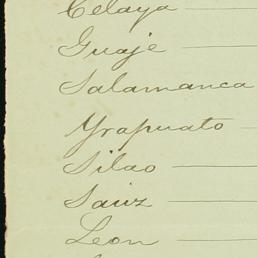 Celaya
Guaje
Salamanca
Yrapuato
Silao
Sauz
Leon